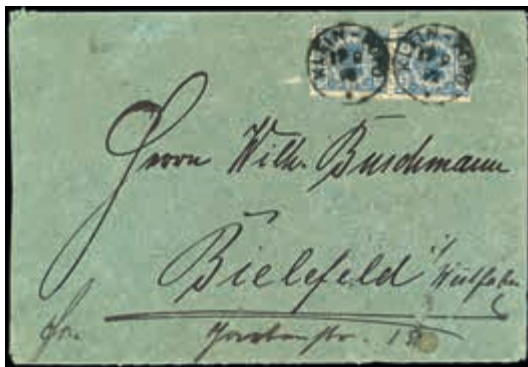 KLEIN-POPO
KLEIN-POPO
Herrn Wilh. Buschmann
Bielefeld i/
Westfalen
fr.